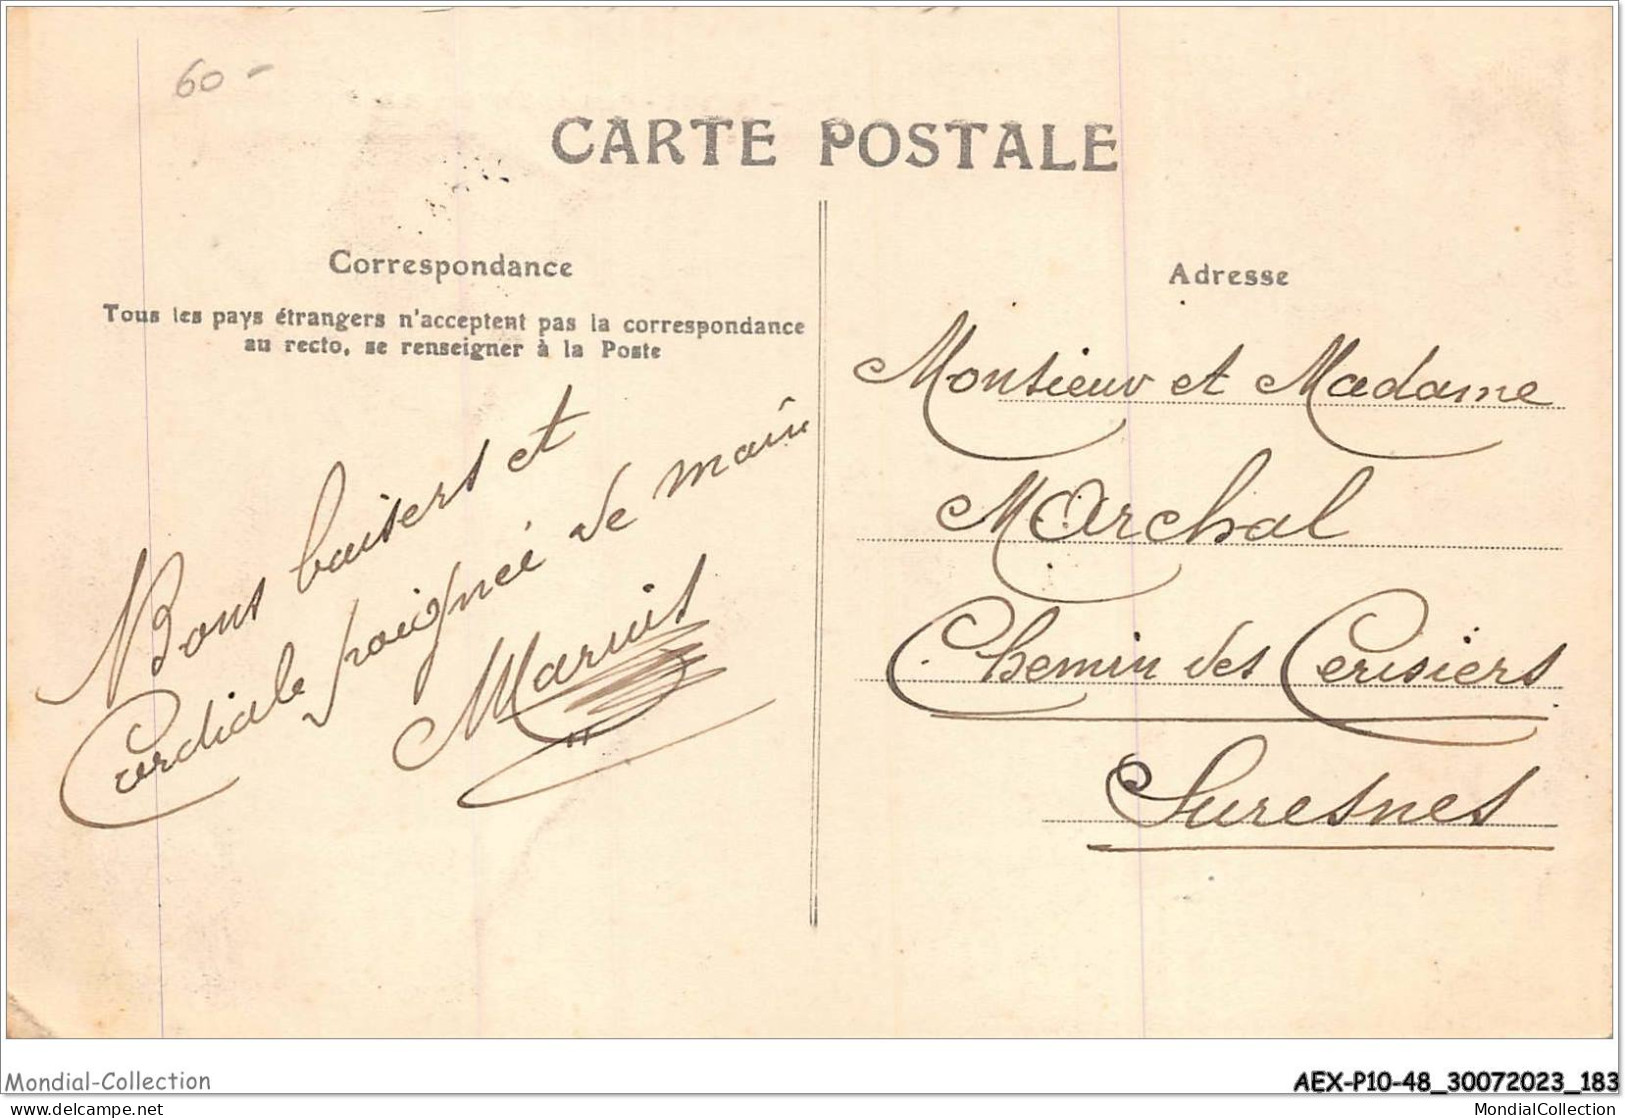 60-
CARTE POSTALE
Correspondance
Tous les pays étrangers n'acceptent pas la correspondance
au recto, se renseigner à la Poste
Bons baisers et
Cordiale poignée de main
Adresse
Monsieur et Madame
Marchal
Chemin des Cerisiers
Suresnes
Mondial-Collection
AEX-P10-48_30072023_183
www.delcampe.net
MondialCollection